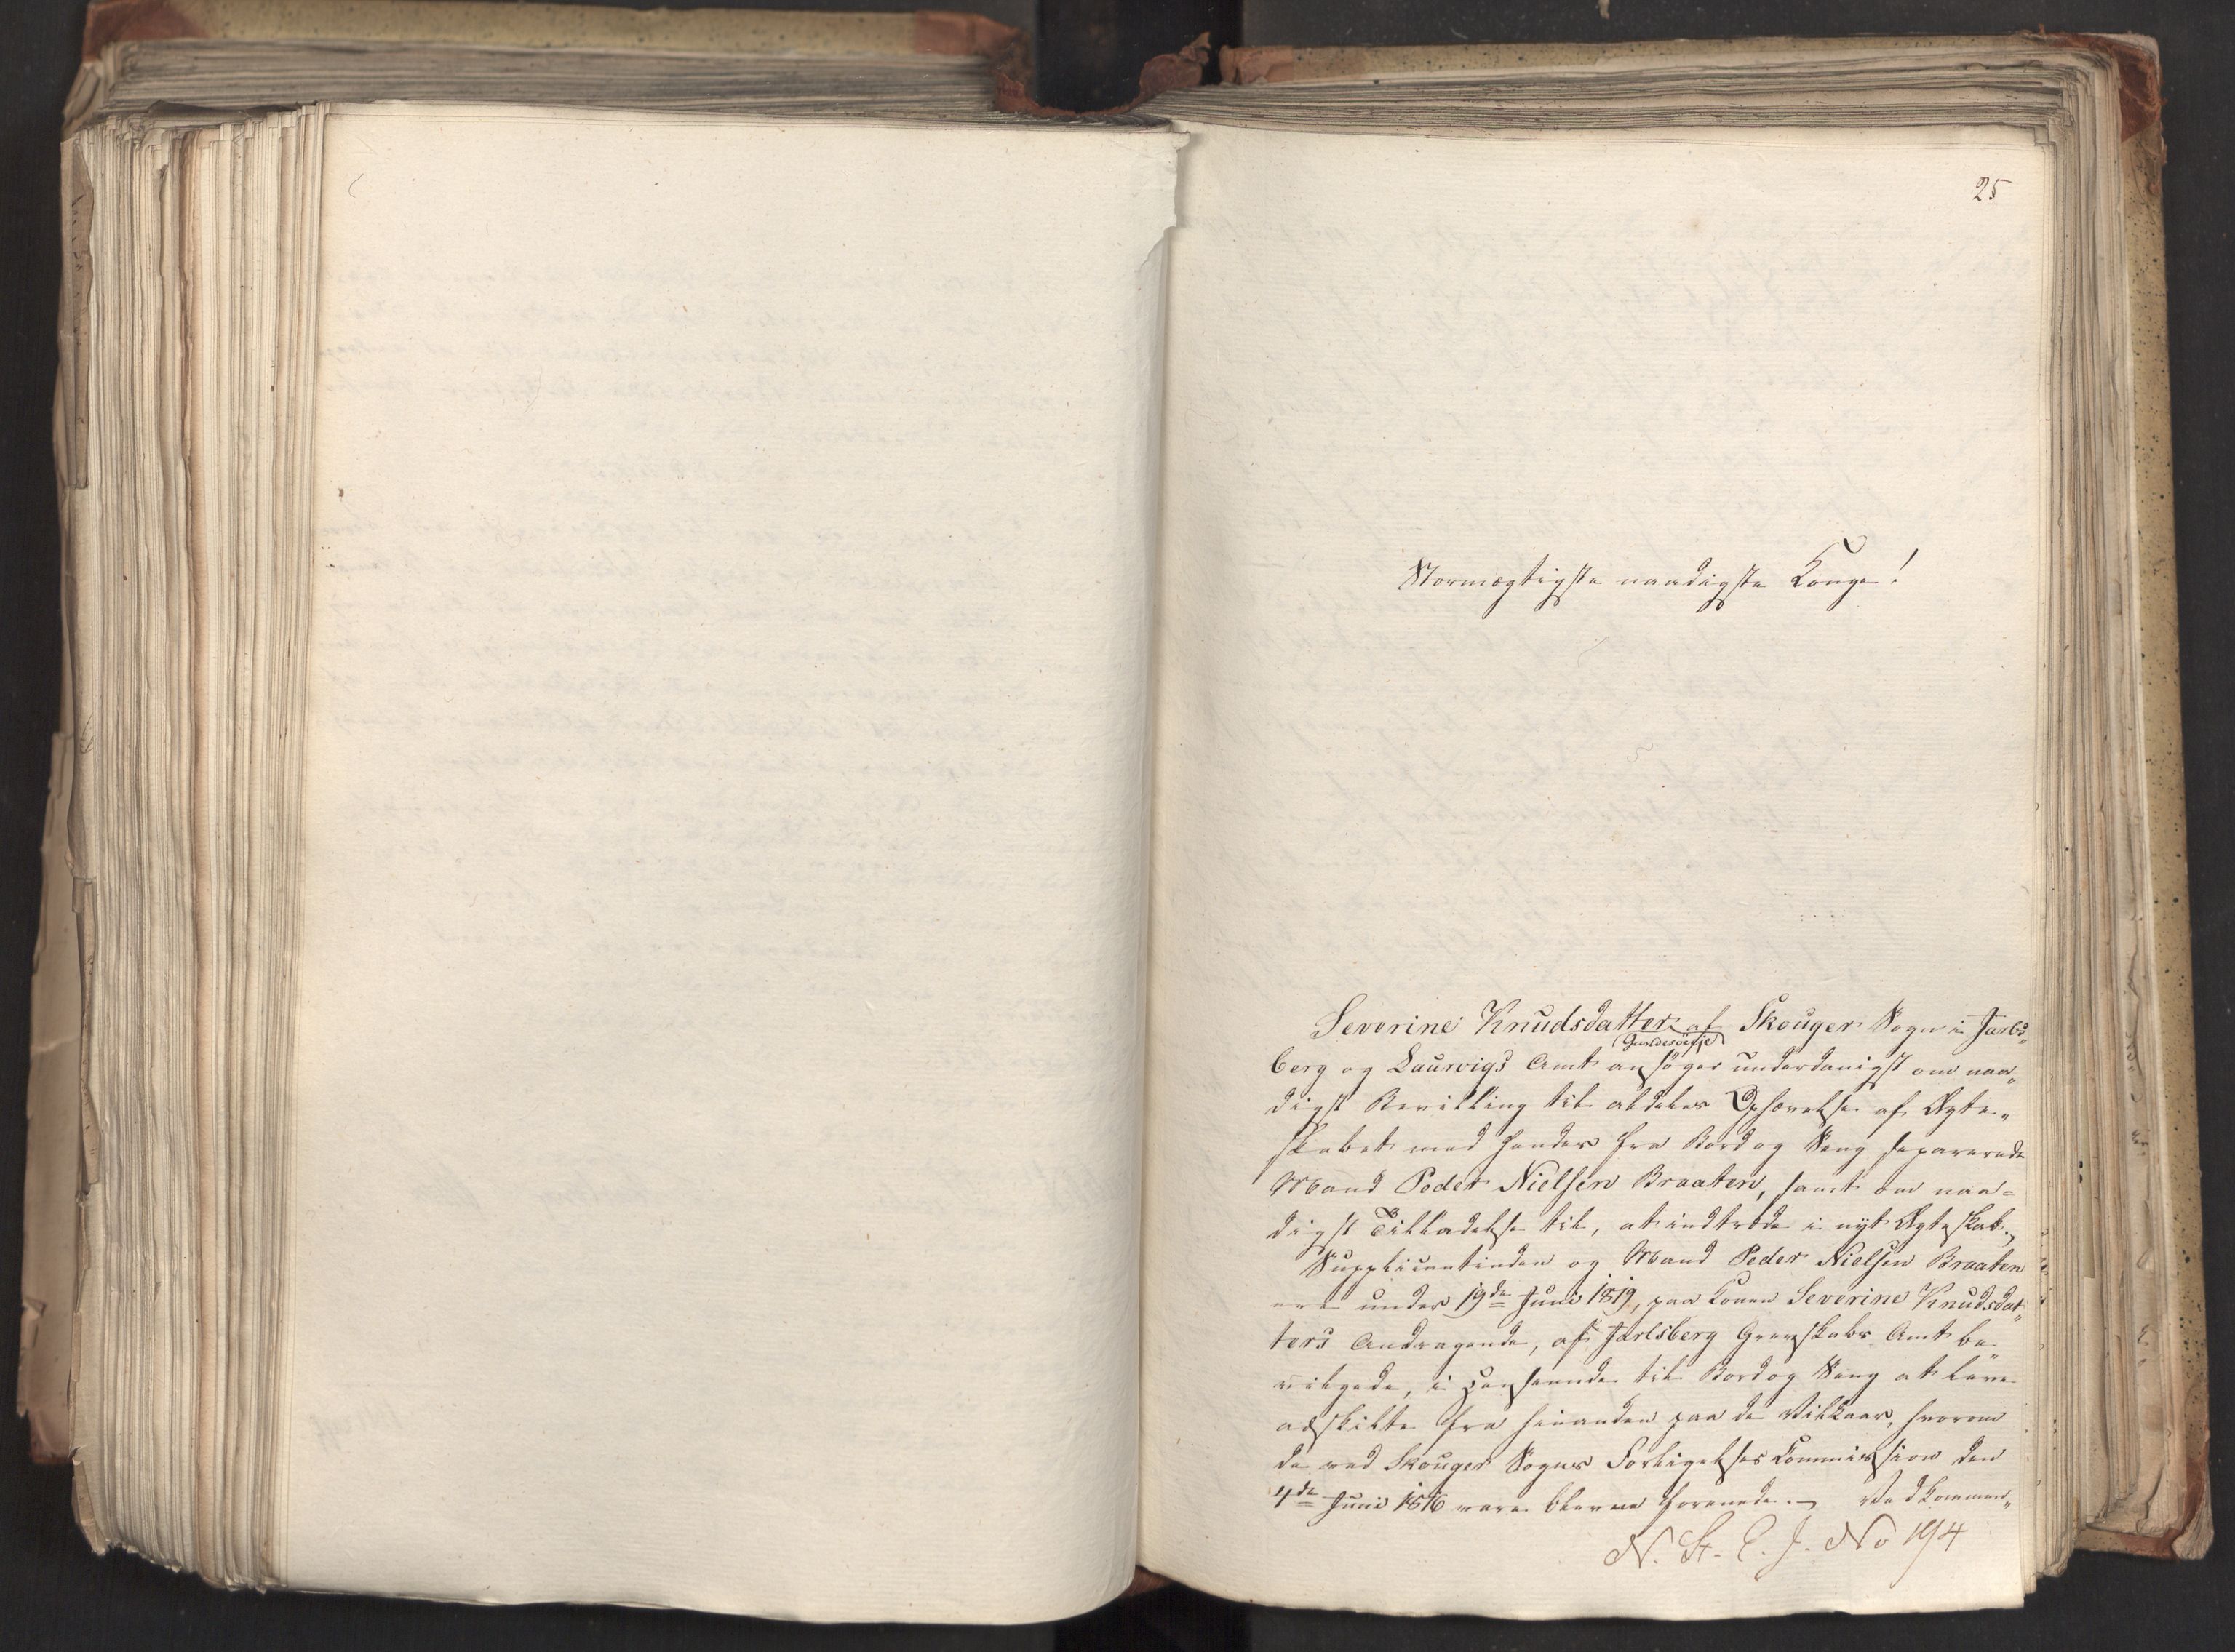 25
Stormægtigste naadigste Konge!
Severine Knudsdatter af Skouger Sogn i Jarls„
(Gundesøeje)
berg og Laurvigs Amt ansøger underdanigst om naa„
digst Bevilling til aldeles Ophævelse af Ægte„
skabet med hendes fra Bord og Seng separerede
Mand Peder Nielsen Braaten, samt om naa=
digst Tilladelse til, at indtræde i nyt Ægteskab.
Supplicantinden og Mand Peder Nielsen Braaten
ere under 19de Juni 1819, paa Konen Severine Knudsdat„
ters Andragende, af Jarlsberg Grevskabs Amt be„
vilgede, i Henseende til Bord og Seng at leve
adskilte fra hinanden paa de Vilkaar, hvorom
de ved Skouger Sogns Forligelses Kommission den
4de Juni 1816 vare blevne forenede. Vedkommen„
N. St. E. J. No 194